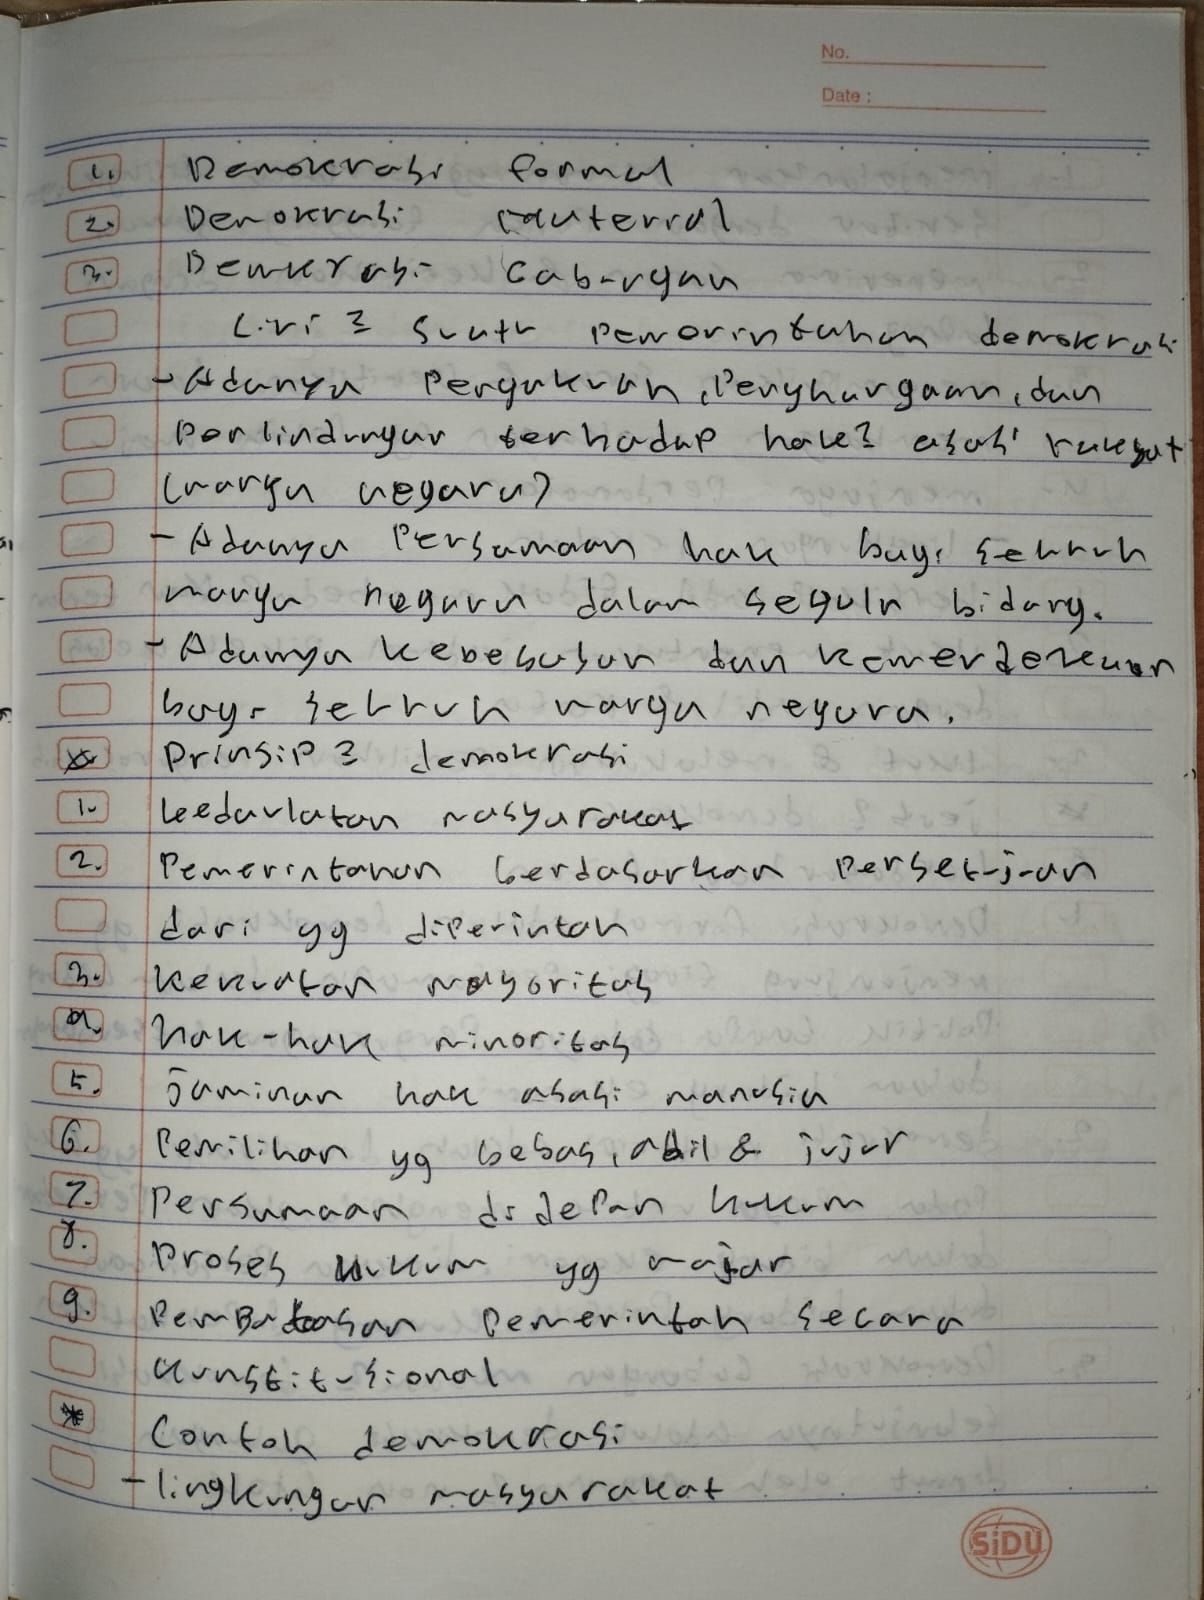 No.
Date :
1. Demokrasi formal
2. Demokrasi material
3. Demokrasi Gabungan
Ciri 2 suatu Pemerintahan demokrasi
- Adanya Pengakuan, Penghargaan, dan
Perlindungan terhadap hak2 asasi rakyat
(warga negara)
- Adanya Persamaan hak bagi seluruh
warga negara dalam segala bidang.
- Adanya kebebasan dan kemerdekaan
bagi seluruh warga negara.
* Prinsip 2 demokrasi
1. kedaulatan masyarakat
2. Pemerintahan berdasarkan Persetujuan
dari yg diperintah
3. kekuatan mayoritas
4. hak-hak minoritas
5. jaminan hak asasi manusia
6. Pemilihan yg bebas, adil & jujur
7. Persamaan di depan hukum
8. Proses hukum yg wajar
9. Pembatasan Pemerintah secara
konstitusional
* Contoh demokrasi
- lingkungan masyarakat
SiDU